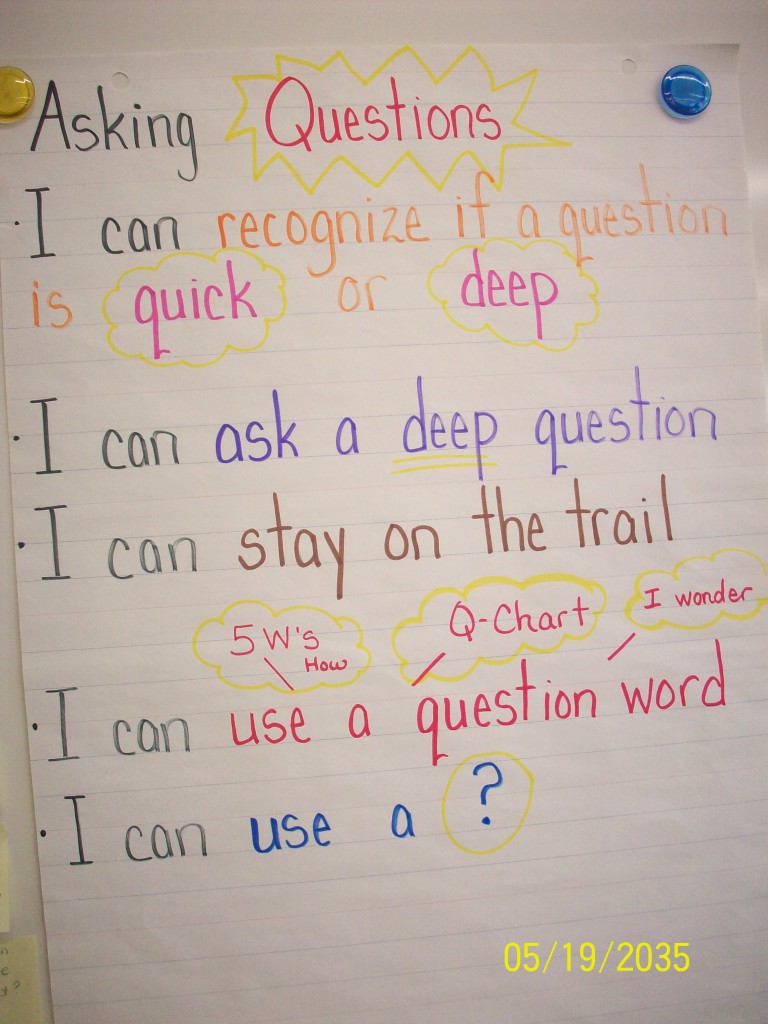 Asking Questions
· I can recognize if a question
is quick or deep
· I can ask a deep question
· I can stay on the trail
5 W's How Q-Chart I wonder
· I can use a question word
· I can use a ?
05/19/2035